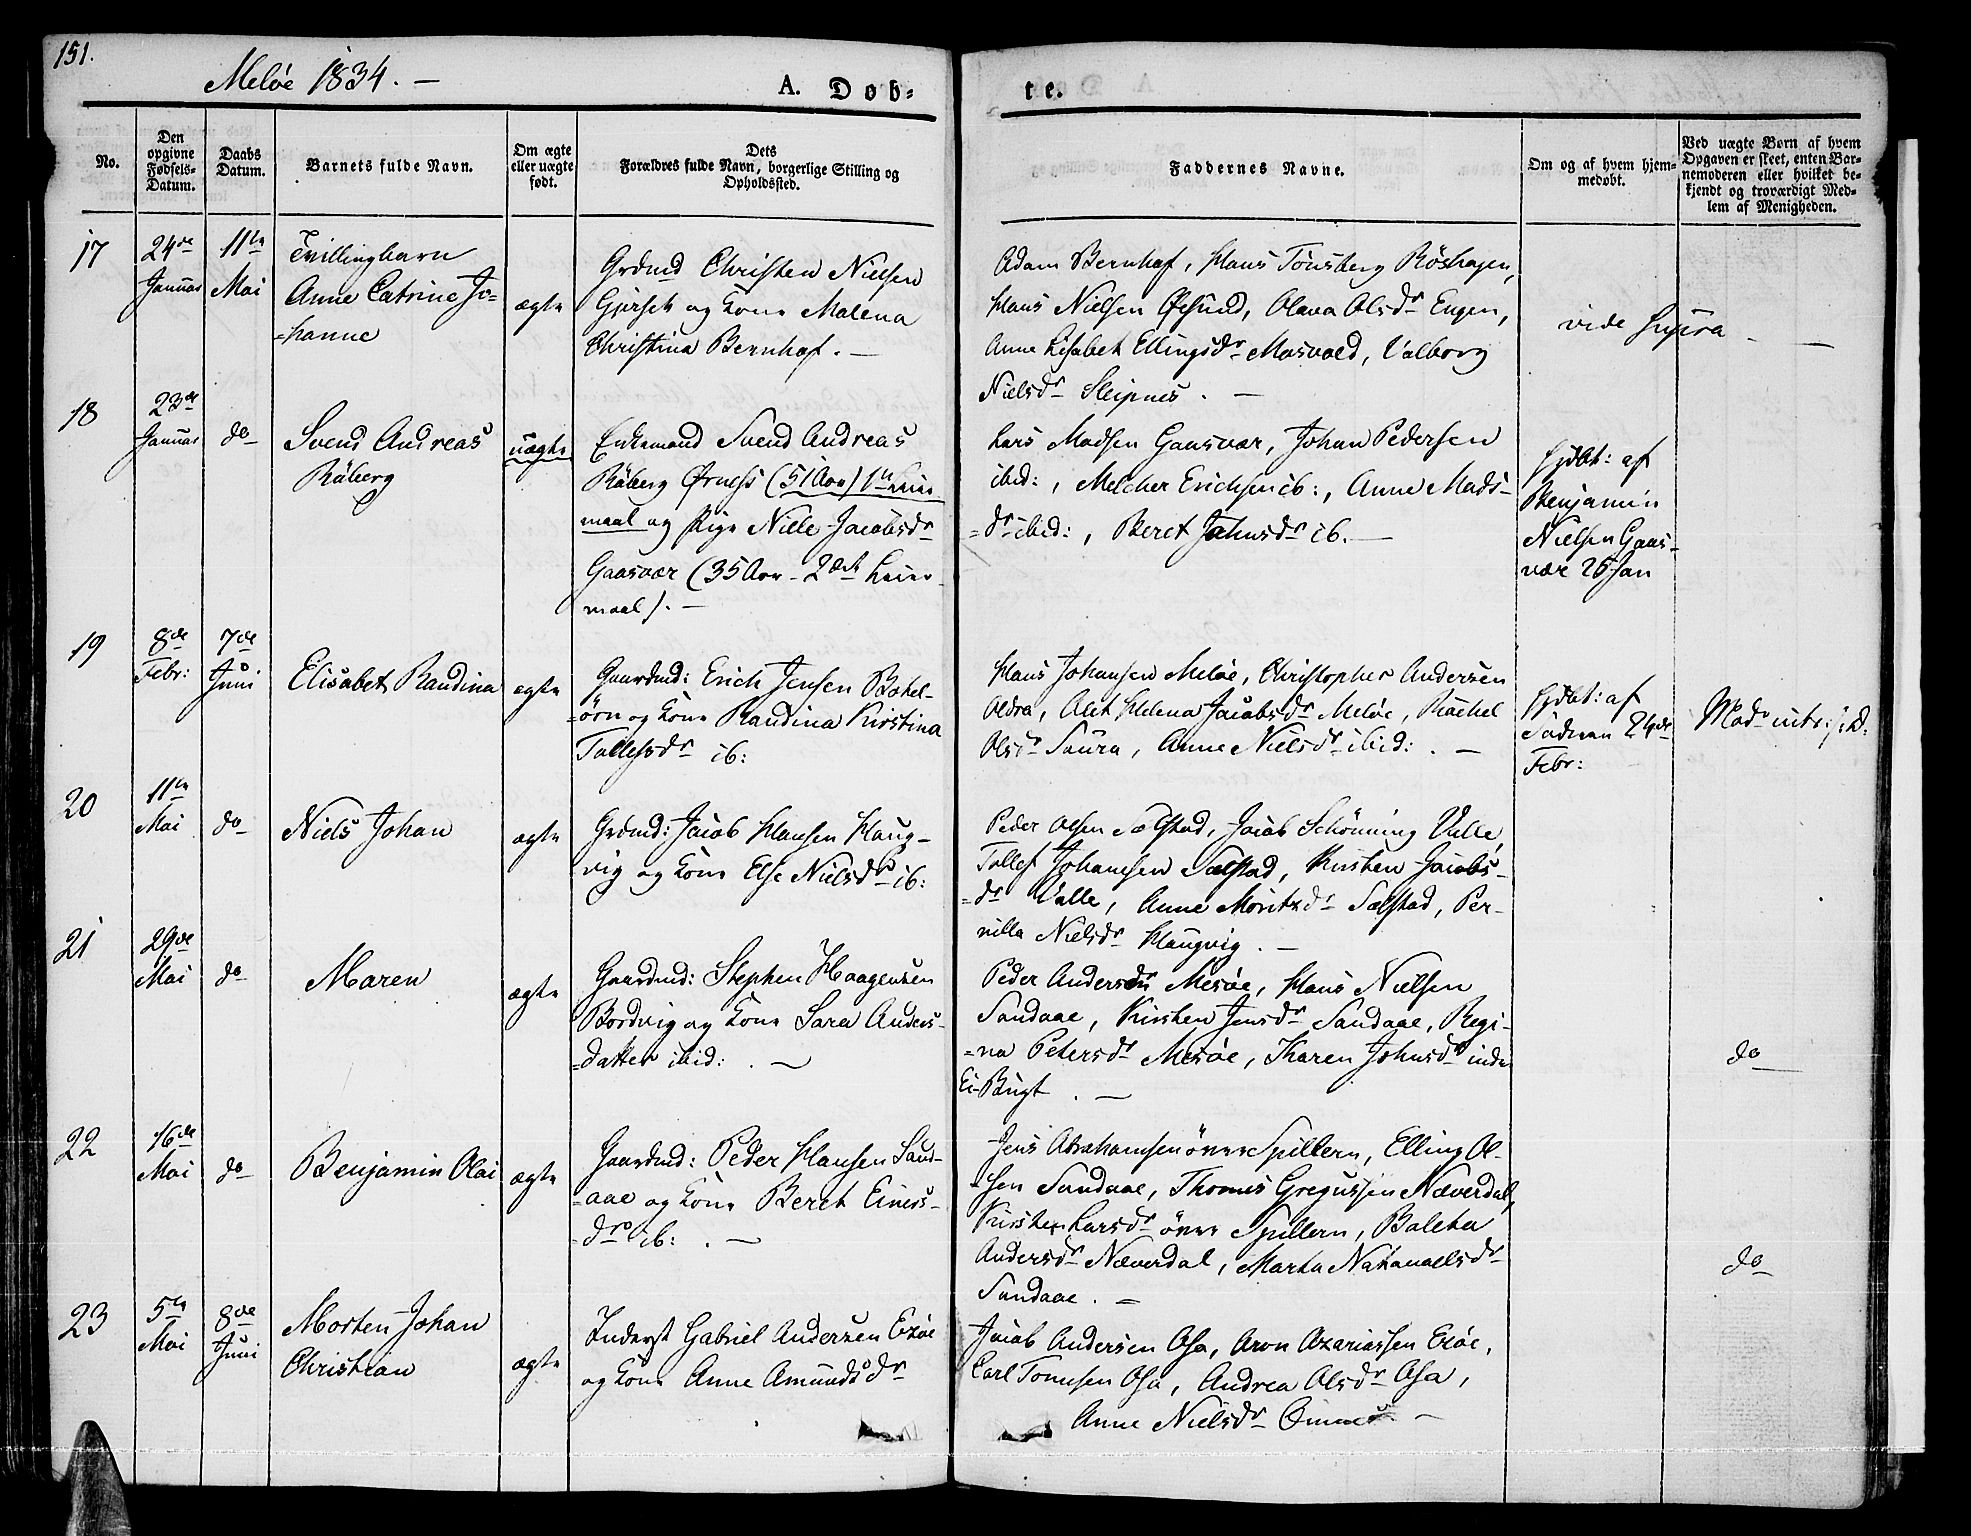 151.
Meløe 1834. —
A. Døb-
te.
No.
Den opgivne Fødsels-Datum.
Daabs Datum.
Barnets fulde Navn.
Om ægte eller uægte født.
Dets Forældres fulde Navn, borgerlige Stilling og Opholdssted.
Faddernes Navne.
Om og af hvem hjemmedøbt.
Ved uægte Børn af hvem Opgaven er skeet, enten Barnemoderen eller hvilket bekjendt og troværdigt Medlem af Menigheden.
17
24de Januar
11te Mai
Tvillingbarn
Anne Catrine Jo-
=hanne
ægte
Grdmd Christen Nielsen
Gjerset og Kone Malena
Christina Bernhof. —
Adam Bernhof, Hans Tønsberg Röshagen,
Hans Nielsen Øesund, Olava Olsdr Engen,
Anne Lisabet Ellingsdr Mosvold, Valborg
Nielsdr Sleipnes. —
vide supra —
18
23de Januar
do
Svend Andreas
Råberg
uægte
Enkemand Svend Andreas
Råberg Ørness (51 Aar) 1te Leier
maal og Pige Nille Jacobsdr
Gaasvær (35 Aar - 2det Leier-
maal). —
Lars Madsen Gaasvær, Johan Pedersen
ibid:, Melcher Erichsen ib:, Anne Mads-
=dr ibid:, Beret Johnsdr ib. —
hjdbt: af
Benjamin
Nielsen Gaas-
vær 26 Jan
19
8de Febr:
7de Juni
Elisabet Randina
ægte
Gaardmd: Erich Jensen Bohel-
=örn og Kone Randina Kirstina
Tollefsdr ib:
Hans Johansen Meløe, Christopher Andersen
Aldra, Alet Helena Jacobsdr Meløe, Rachel
Olsdr Saura, Anne Nielsdr ibid: . —
hjdbt: af
Faderen 24de
Febr:
Modr intr:
20
11te Mai
do
Niels Johan
ægte
Grdmd: Jacob Hansen Haug-
vig og Kone Else Nielsdr ib:
Peder Olsen Selstad, Jacob Schönning Valle,
Tollef Johansen Selstad, Kirsten Jacobs-
=dr Valle, Anne Moritzdr Selstad, Per-
nilla Nielsdr Haugvig. —
21
29de Mai
do
Maren
ægte
Gaardmd: Stephen Haagensen
Bordvig og Kone Sara Anders-
=datter ibid: . —
Peder Andersen Mesøe, Hans Nielsen
Sandaae, Kirsten Jensdr Sandaae, Regi-
=na Petersdr Mesøe, Karen Johnsdr indre
Ei-Bugt . —
do
22
16de Mai
do
Benjamin Olai
ægte
Gaardmd: Peder Hansen Sand-
=aae og Kone Beret Einers-
=dr ib: . —
Jens Abrahamsen övre Spillern, Elling Ol-
=sen Sandaae, Thomas Gregussen Næverdal,
Kirsten Larsdr övre Spillern, Baleta
Andersdr Næverdal, Marta Natanaelsdr
Sandaae. —
do
23
5te Mai
8de Juni
Morten Johan
Christian
ægte
Inderst Gabriel Andersen Exöe
og Kone Anne Amundsdr
Jacob Andersen Osa, Aron Azariassen Exöe,
Carl Tomesen Osa, Andrea Olsdr Osa,
Anne Nielsdr —